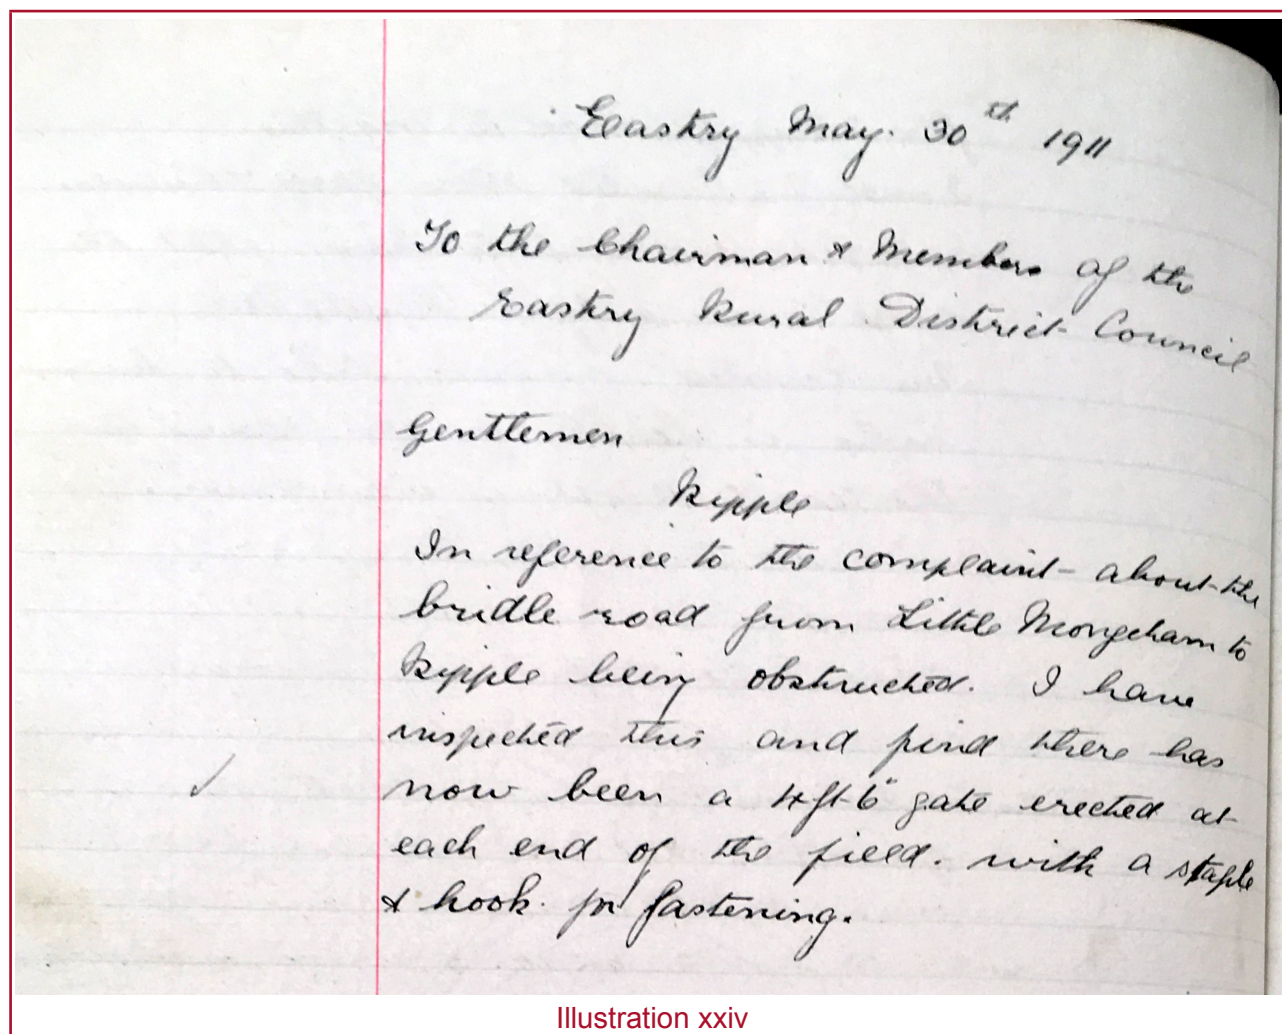 Eastry May. 30th 1911
To the Chairman & Members of the
Eastry Rural District Council
Gentlemen
Ripple
In reference to the complaint about the
bridle road from Little Mongeham to
Ripple being obstructed. I have
inspected this and find there has
now been a 4ft 6" gate erected at
each end of the field. with a staple
& hook. for fastening.
Illustration xxiv